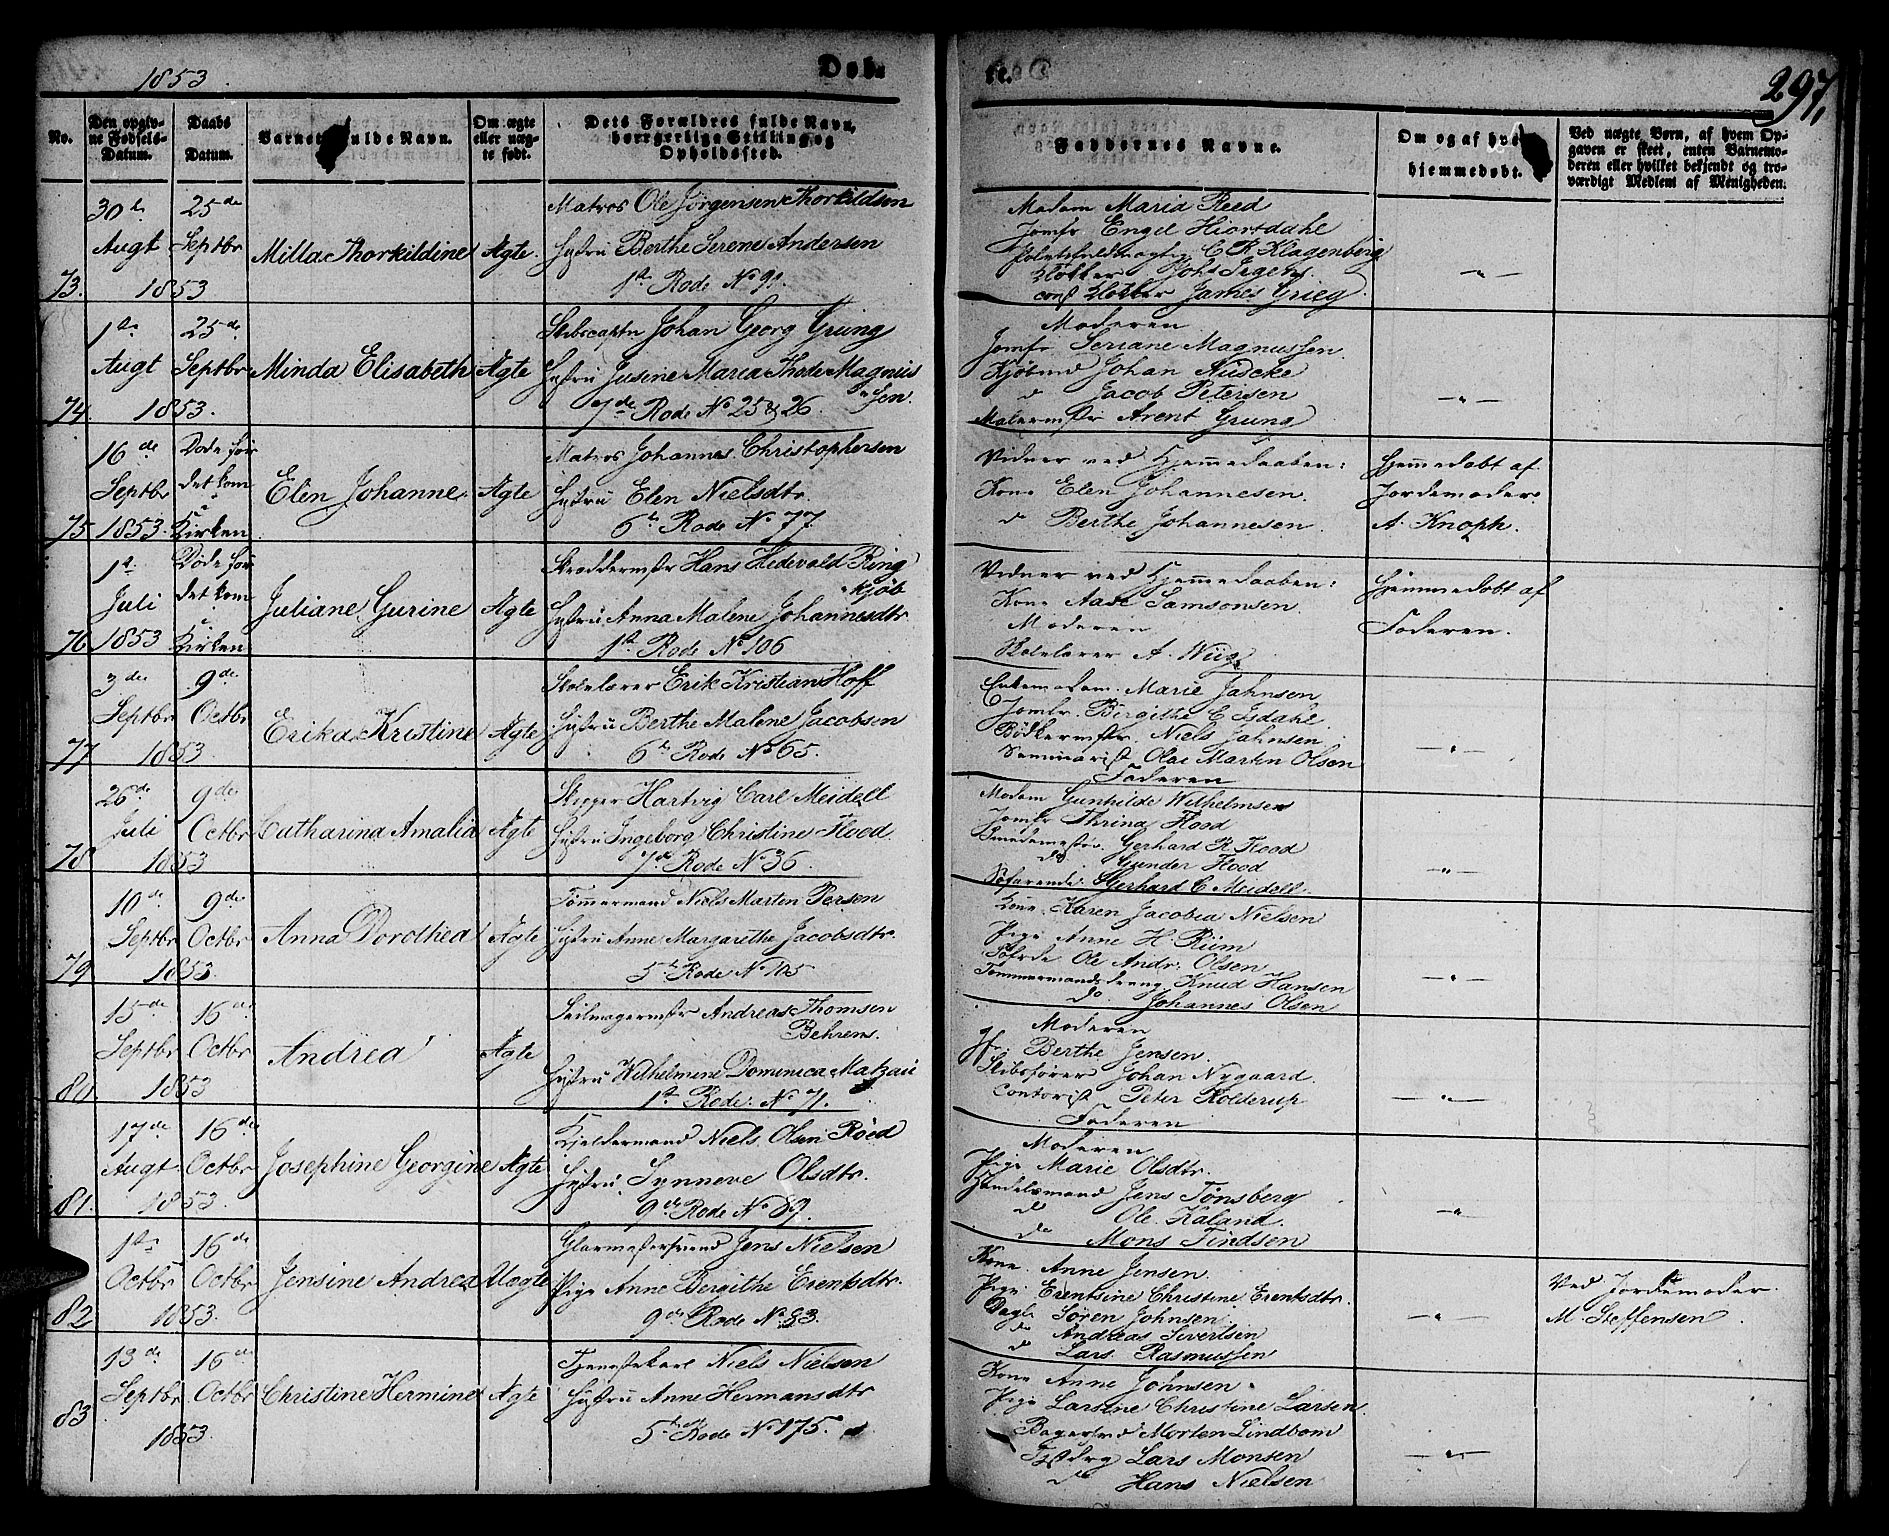 1853.
Døb-
te.
297,
No.
Den opgivne Fødsels-Datum.
Daabs Datum.
Varnets fulde Navn.
Om ægte eller uægte født.
Dets Forældres fulde Navn, borgerlige Stilling og Opholdssted.
Faddernes Navne.
Om og af hvem hjemmedøbt.
Ved uægte Børn, af hvem Opgaven er skeet, enten Barnemoderen eller hvilket bekjendt og troværdigt Medlem af Menigheden.
73.
30te Augt 1853
25de Septbr
Milla Thorkildine
Ægte.
Matros Ole Jörgensen Thorkildsen
Hustru Berthe Serene Andersen
1ste Rode No 91.
Madam Maria Reed
Jomfr Engel Hiortdahl
C. R. Klagenberg
Klokker Johs
const Klokker James Grieg
"
74.
1ste Augt 1853.
25de Septbr
Minda Elisabeth
Ægte
Skibscaptn Johan Georg Grung
Hustru Jusine Maria Thode Magnus
sen.
7de Rode No 25 & 26.
Moderen
Jomfr Seriane Magnussen
Kjøbmd Johan
do Jacob Petersen
Malermstr Arent Grung
"
75
16de Septbr 1853.
Døde før det kom i Kirken
Elen Johanne.
Ægte
Matros Johannes Christophersen
Hustru Elen Nielsdtr.
6te Rode No 77
Vidner ved Hjemmedaaben:
Kone Elen Johannesen
do Berthe Johannesen.
Hjemmedøbt af
Jordemoder
A. Knoph.
76
1ste Juli 1853
Døde før det kom i Kirken
Juliane Gurine
Ægte
Skræddermstr Hans Hedevald Ring
kjöb
Hustru Anna Malene Johannesdtr.
1ste Rode No 106
Vidner ved Hjemmedaaben:
Kone Aase Samsonsen
Moderen
Skolelærer A. Wiig
Hjemmedøbt af
Faderen.
77
3die Septbr 1853
9de Octbr
Erika Kristine
Ægte
Skolelærer Erik Kristian Hoff
Hustru Berthe Malene Jacobsen
6te Rode No 65.
Enkemadam. Marie Jahnsen
Jomfr. Birgithe C Isdahl
Bødkermstr. Niels Jahnsen
Seminarist Olae Martin Olsen
Faderen
"
78
26de Juli 1853
9de Octbr
Catharina Amalia
Ægte
Skipper Hartvig Carl Meidell
Hustru Ingeborg Christine Flood
7de Rode No 36.
Madam Gunhilde Wilhelmsen
Jomfr Thrina Flood
Smedemester Gerhard R. Flood
do Gunder Flood
Søfarende Gerhard C Meidell.
"
79
10de Septbr 1853
9de Octbr
Anna Dorothea
Ægte
Tömmermand Niels Marten Persen
Hustru Anne Margarethe Jacobsdtr.
5te Rode No 105
Kone Karen Jacobia Nielsen
Pige Anne H. Riim
Søfrde Ole Andr. Olsen
Tømmermandsdreng Knud Hansen
do Johannes Olsen
"
80
15de Septbr 1853
16de Octbr
Andrea
Ægte
Seilmagermstr Andreas Thomsen
Behrens.
Hustru Wilhelmine Dominica Matzau
1ste Rode. No 71.
Moderen
Jfr. Berthe Jensen.
Skibsfører Johan Nygaard
Contorist Peter Rolderup
Faderen
"
81.
17de Augt 1853.
16de Octbr
Josephine Georgine
Ægte
Kjeldermand Niels Olsen Röed
Hustru. Synneve Olsdtr.
9de Rode No 89.
Moderen
Pige Marie Olsdtr.
Handelsmand Jens Tönsberg
do Ole Kaland.
do Mons Findsen
"
82
1ste Octbr 1853.
16de Octbr
Jensine Andrea
Uægte
Glarmestersvend Jens Nielsen
Pige Anne Bergithe Erentsdtr.
9de Rode No 83.
Kone. Anne Jensen.
Pige Erentsine Christine Erentsdtr.
Dagl. Sören Johnsen.
do Andreas Sivertsen
do Lars Rasmussen
"
Ved Jordemoder
M. Steffensen.
83
13de Septbr 1853.
16de Octbr
Christine Hermine
Ægte
Tjenestekarl Niels Nielsen
Hustru Anne Hermansdtr
5te Rode No 175.
Kone Anne Johnsen.
Pige Larsine Christine Larsen.
Bagersvd Morten Lindbom
Lars Monsen
do Hans Nielsen
"